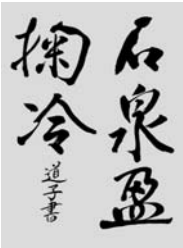 石泉盈
掬冷
道子書